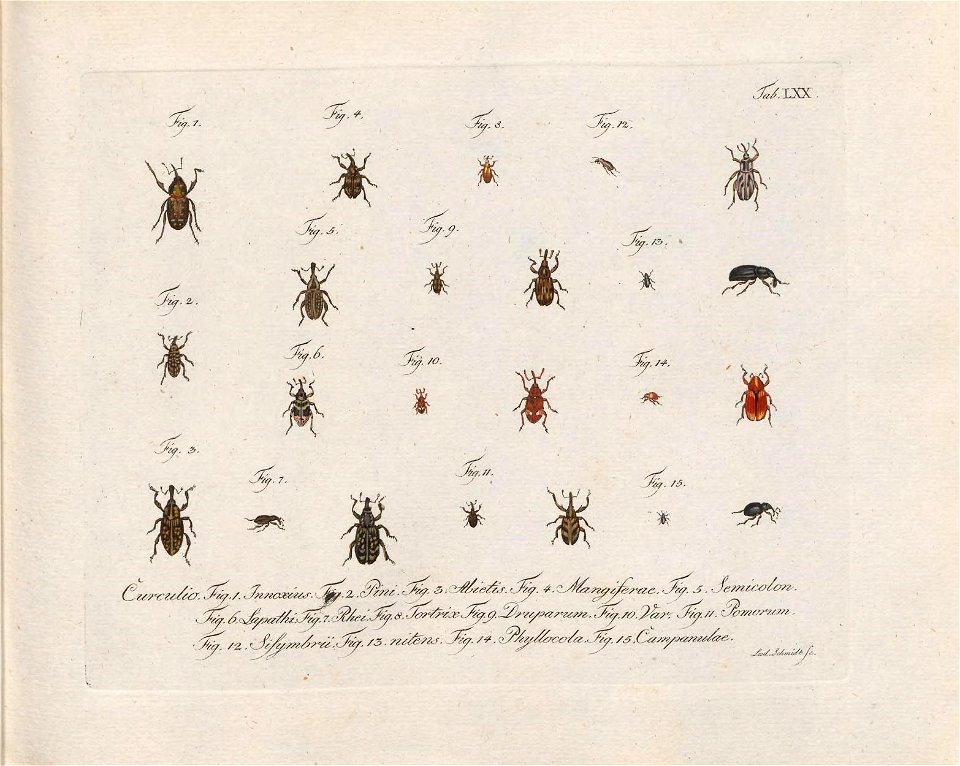 Tab. LXX.
Fig. 1.
Fig. 4.
Fig. 8.
Fig. 12.
Fig. 5.
Fig. 9.
Fig. 13.
Fig. 2.
Fig. 6.
Fig. 10.
Fig. 14.
Fig. 3.
Fig. 7.
Fig. 11.
Fig. 15.
Curculio. Fig. 1. Innoxius. Fig. 2. Pini. Fig. 3. Abietis. Fig. 4. Mangiferae. Fig. 5. Semicolon.
Fig. 6. Lapathi. Fig. 7. Rhei. Fig. 8. Tortrix. Fig. 9. Druparum. Fig. 10. Var. Fig. 11. Pomorum.
Fig. 12. Sisymbrii. Fig. 13. nitens. Fig. 14. Phyllocola. Fig. 15. Campanulae.
Lud. Schmidt Sc.